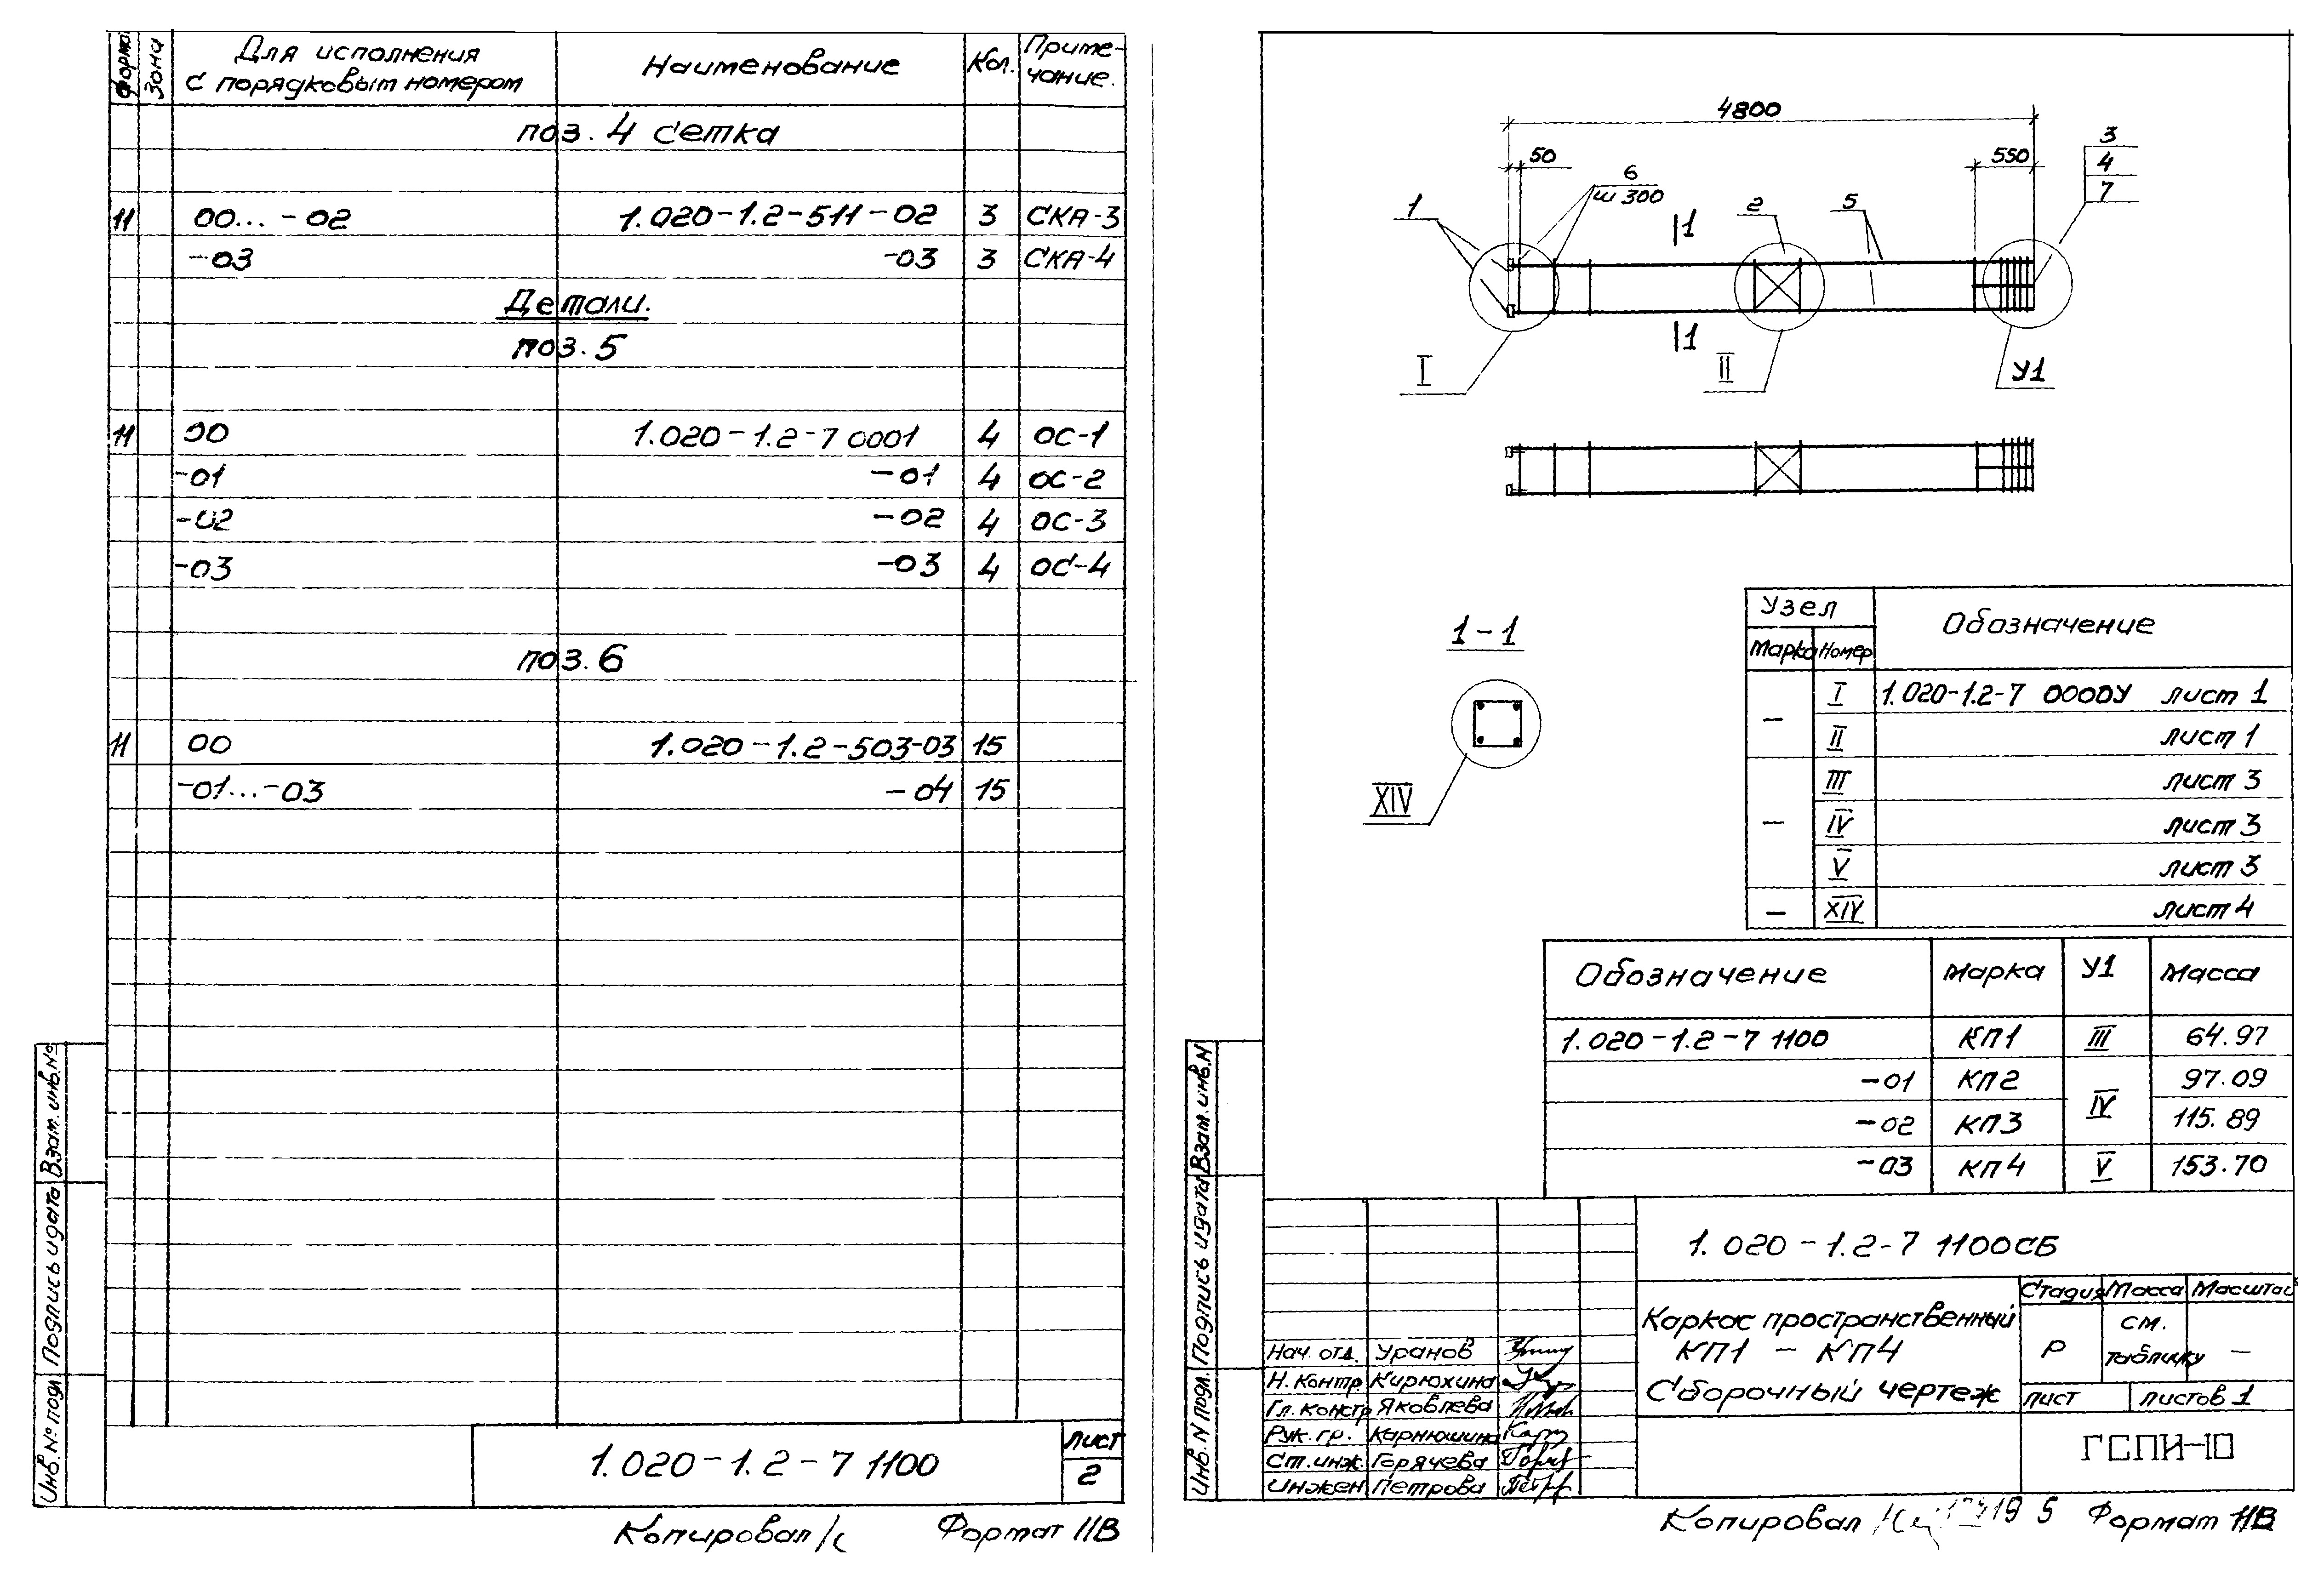 Формат Зона Для исполнения с порядковым номером Наименование Кол. Приме-чание.
поз. 4 сетка
11 00...-02 1.020-1.2-511-02 3 СКА-3
-03 -03 3 СКА-4
Детали.
поз. 5
11 00 1.020-1.2-7 0001 4 ОС-1
-01 -01 4 ОС-2
-02 -02 4 ОС-3
-03 -03 4 ОС-4
поз. 6
11 00 1.020-1.2-503-03 15
-01...-03 -04 15
Инв. № подл. Подпись и дата Взам. инв. №
1.020-1.2-7 1100
лист
2
Копировал
Формат 11В
4800
50
550
3
4
7
6
ш 300
1
2
5
1
1
I
II
У1
1-1
XIV
Узел Обозначение
Марка Номер
– I 1.020-1.2-7 0000У лист 1
II лист 1
– III лист 3
IV лист 3
V лист 3
– XIV лист 4
Обозначение Марка У1 Масса
1.020-1.2-7 1100 КП1 III 64.97
-01 КП2 IV 97.09
-02 КП3 115.89
-03 КП4 V 153.70
Инв. N подл. Подпись и дата Взам. инв. N
1.020-1.2-7 1100СБ
Каркас пространственный
КП1 - КП4
Сборочный чертеж
Стадия Масса Масштаб
Р см. таблицу –
лист листов 1
ГСПИ-10
Нач. отд. Уранов
Н. контр Кирюхина
Гл. констр Яковлева
Рук. гр. Карнюшина
Ст. инж. Горячева
Инжен Петрова
Копировал
Формат 11В